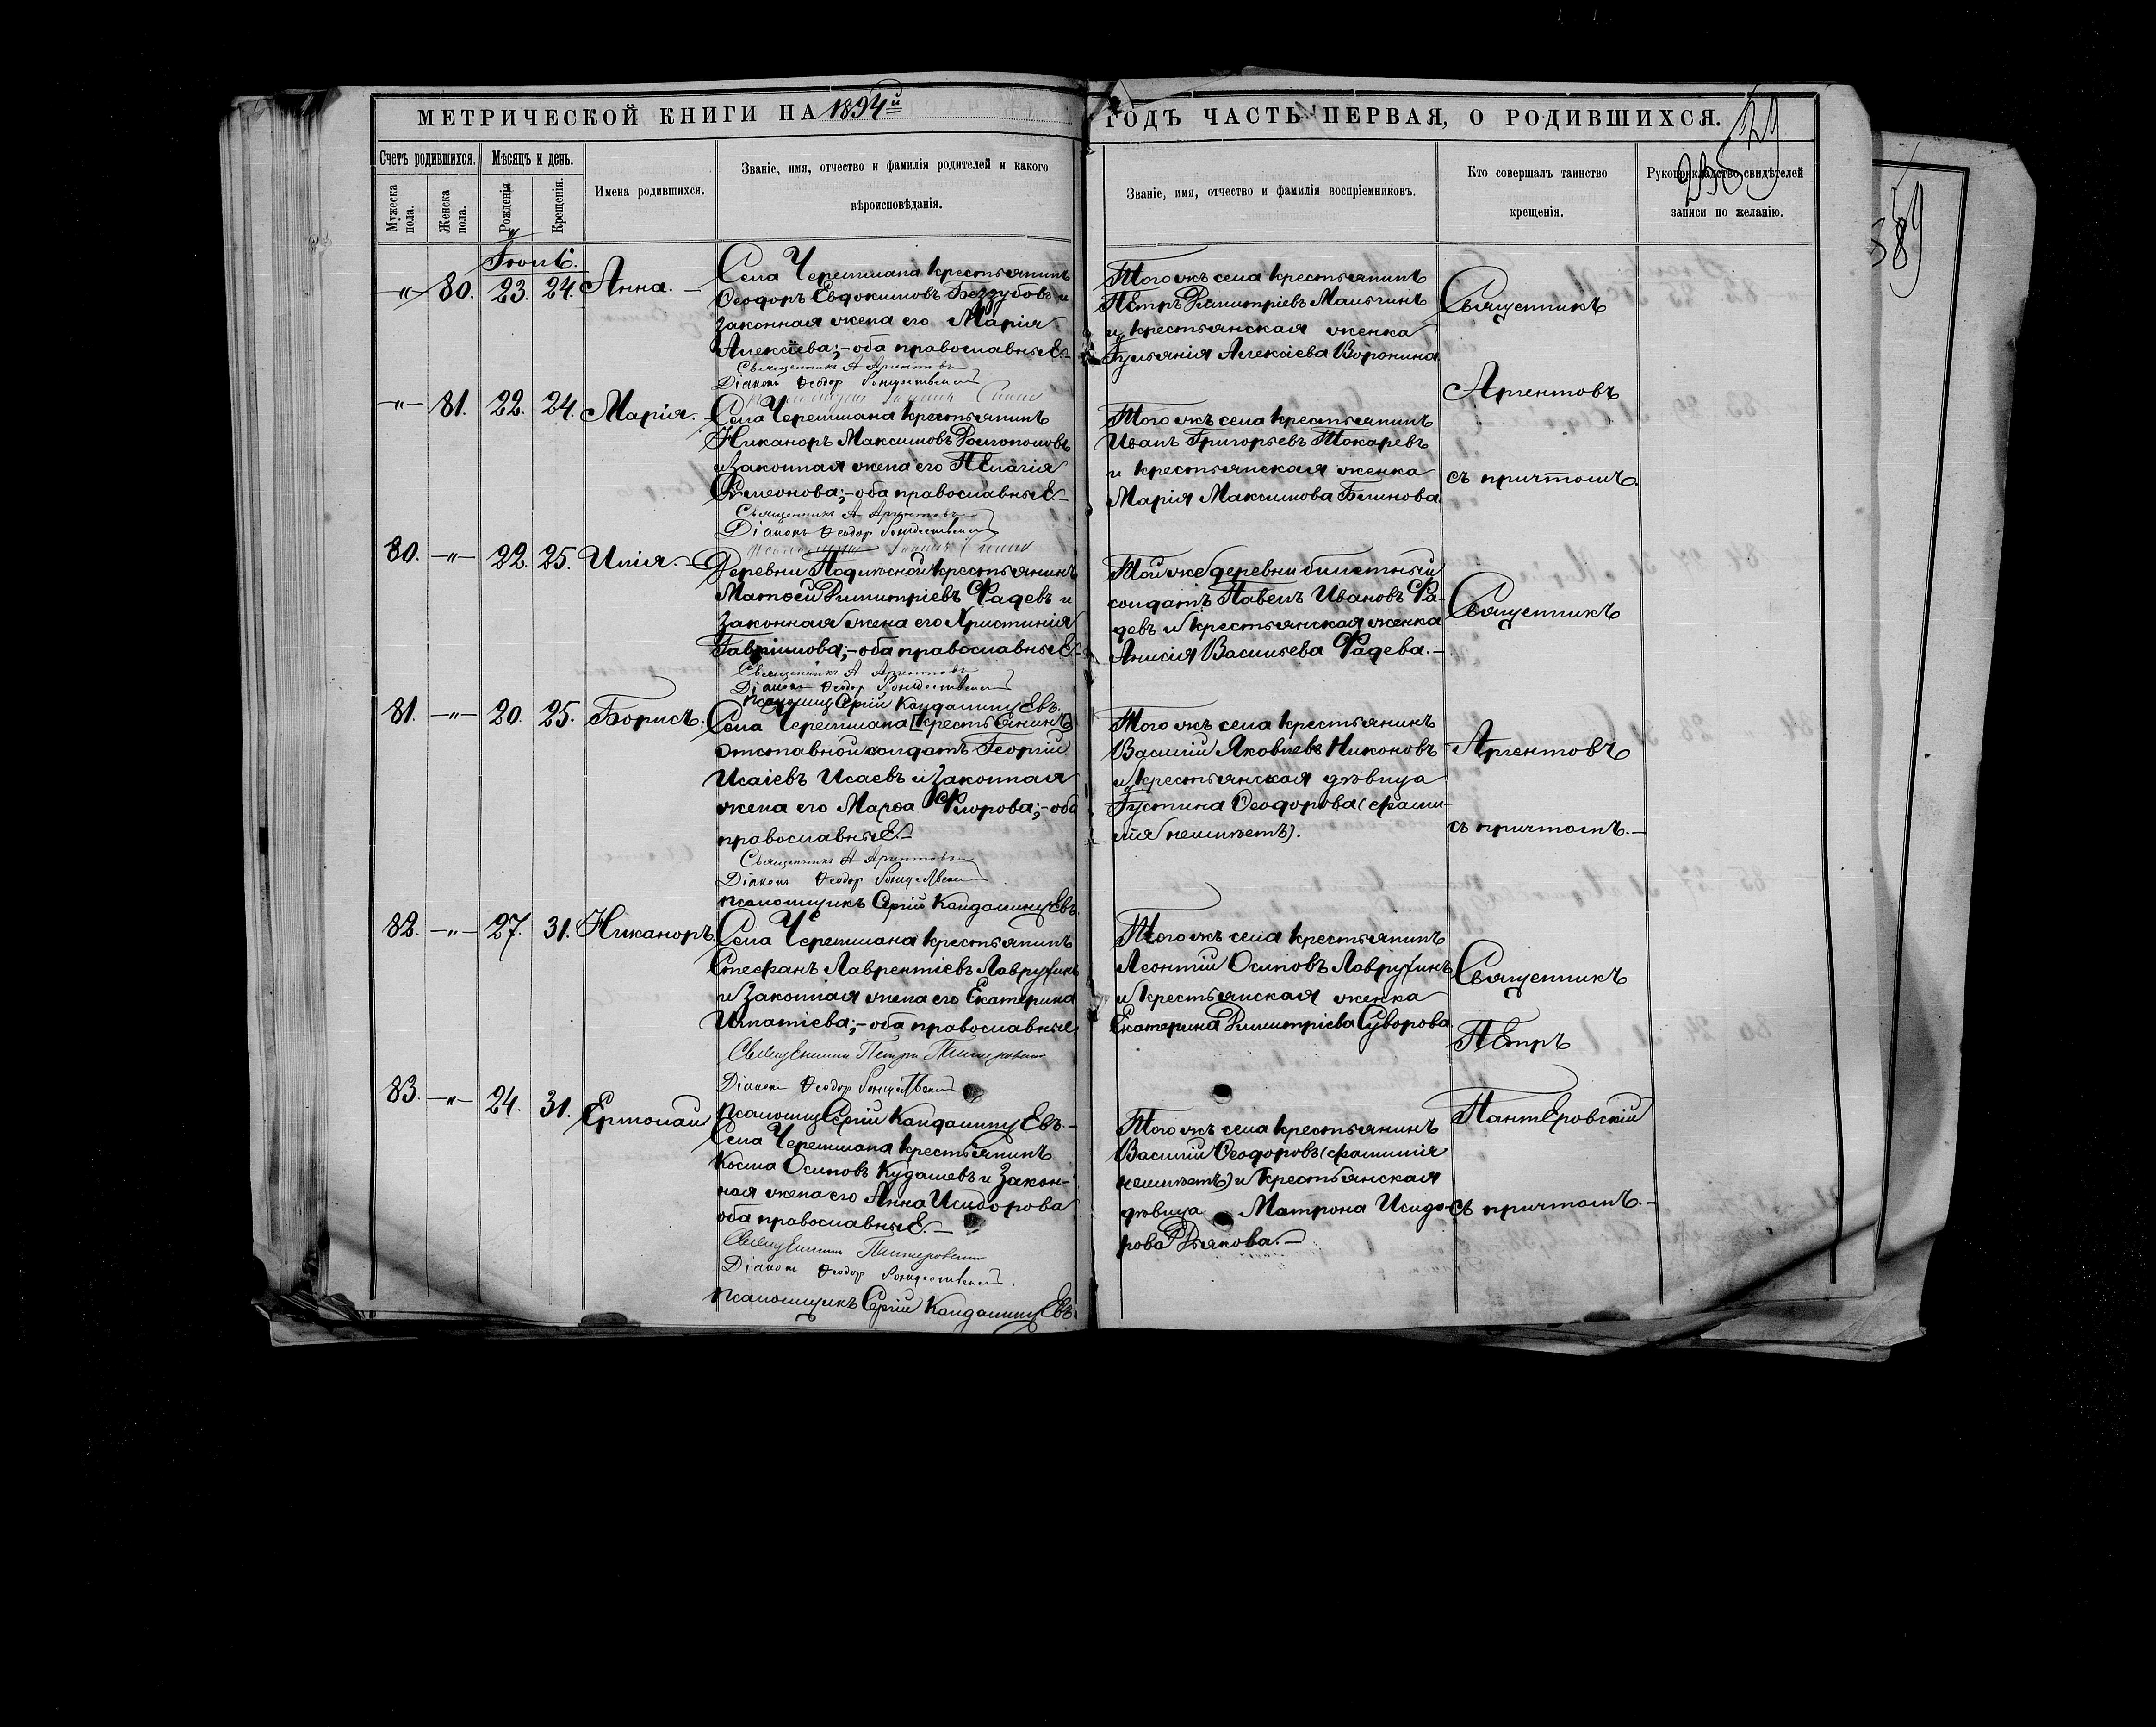 МЕТРИЧЕСКОЙ КНИГИ НА 1894й
ГОДЪ ЧАСТЬ ПЕРВАЯ, О РОДИВШИХСЯ.
Счетъ родившихся.
Мѣсяцъ и день.
Мужеска пола.
Женска пола.
Рожденія
Крещенія.
Имена родившихся.
Званіе, имя, отчество и фамилія родителей и какого
вѣроисповѣданія.
Званіе, имя, отчество и фамилія воспріемниковъ.
Кто совершалъ таинство
крещенія.
Рукоприкладство свидѣтелей
записи по желанію.
Іюль.
-"- 80. 23. 24. Анна.
Села Черемшана крестьянинъ
Ѳеодоръ Евдокимовъ Беззубовъ и
законная жена его Марія
Алексѣева; - оба православные
Священникъ А Аргентовъ
Діаконъ Ѳеодор Рождественскій
Тогожъ села крестьянинъ
Петръ Димитріевъ Малыгинъ
и крестьянская женка
Іуліанія Алексіева Воронина.
Священникъ
Аргентовъ
съ причтомъ.
-"- 81. 22. 24. Марія.
Села Черемшана крестьянинъ
Никаноръ Максимовъ Долгополовъ
и законная жена его Пелагія
Симеонова; - оба православные
Священникъ А Аргентовъ
Діаконъ Ѳеодор Рождественскій
Тогожъ села крестьянинъ
Иванъ Григорьевъ Токаревъ
и крестьянская женка
Марія Максимова Блинова.
80. -"- 22. 25. Илія.
Деревни Подлѣсной крестьянинъ
Матѳей Димитріевъ Фадевъ и
законная жена его Христинія
Гавріилова; - оба православные
Священникъ А Аргентовъ
Діаконъ Ѳеодор Рождественскій
Псаломщ Сергій Кайдалинцевъ.
Той же деревни билетный
солдатъ Павелъ Ивановъ Фа-
девъ и крестьянская женка
Анисія Васильева Фадева.
Священникъ
Аргентовъ
съ причтомъ.
81. -"- 20. 25. Борисъ.
Села Черемшана [крестьянинъ]
отставной солдатъ Георгій
Исаіевъ Исаевъ и законная
жена его Марѳа Флорова; - оба
православные
Священникъ А Аргентовъ
Діаконъ Ѳеодор Рождественскій
Псаломщикъ Сергій Кайдалинцевъ.
Тогожъ села крестьянинъ
Василій Яковлевъ Никоновъ
и крестьянская дѣвица
Густина Ѳеодорова (фами-
лія неимѣетъ).
82. -"- 27. 31. Никаноръ.
Села Черемшана крестьянинъ
Стефанъ Лаврентіевъ Лаврухинъ
и законная жена его Екатерина
Игнатіева; - оба православные
Священникъ Петръ Пантеровскій
Діаконъ Ѳеодор Рождественскій
Псаломщ Сергій Кайдалинцевъ.
Тогожъ села крестьянинъ
Леонтій Осиповъ Лаврухинъ
и крестьянская женка
Екатерина Димитріева Суворова.
Священникъ
Петръ
Пантеровскій
съ причтомъ.
83. -"- 24. 31. Ермолай
Села Черемшана крестьянинъ
Косма Осиповъ Кудашевъ и закон-
ная жена его Анна Исидорова
оба православные.
Священникъ Пантеровскій
Діаконъ Ѳеодор Рождественскій.
Псаломщикъ Сергій Кайдалинцевъ.
Тогожъ села крестьянинъ
Василій Ѳеодоровъ (фамилія
неимѣетъ) и крестьянская
дѣвица Матрона Исидо-
рова Дьякова.